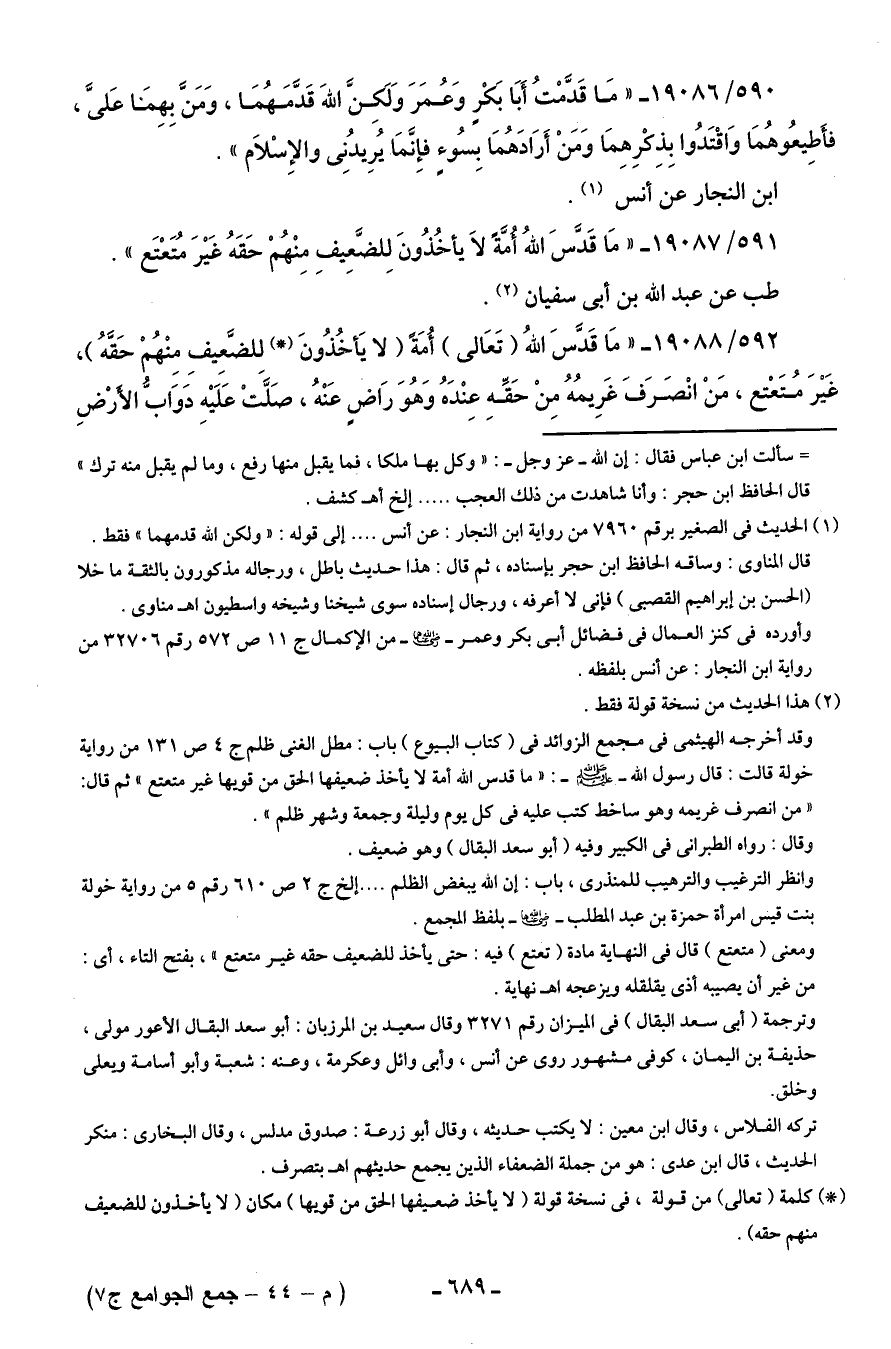 ٥٩٠/ ١٩٠٨٦ـ « مَـا قَدَّمْتُ أَبَا بَكْرٍ وَعُـمَرَ وَلَكِـنَّ اللهَ قَدَّمَـهُمَـا ، وَمَنَّ بِهِمَـا عَلَىَّ ،
فَأَطِيعُوهُمَا وَاقْتَدُوا بِذِكْرِهِمَا وَمَنْ أَرَادَهُمَا بِسُوءٍ فَإِنَّمَا يُرِيدُنِى وَالإِسْلَامَ » .
ابن النجار عن أنس (١) .
٥٩١/ ١٩٠٨٧ـ « مَا قَدَّسَ اللهُ أُمَّةً لاَ يَأخُذُونَ لِلضَّعِيفِ مِنْهُمْ حَقَهُ غَيْرَ مُتَعْتَعٍ » .
طب عن عبد الله بن أبى سفيان (٢) .
٥٩٢/ ١٩٠٨٨ـ « مَا قَدَّسَ اللهُ ( تَعَالى ) أُمَةً ( لا يَأخُذُونَ (*) لِلضَعِيفِ مِنْهُمْ حَقَّهُ )،
غَيْرَ مُـتَعتعٍ ، مَنْ انْصَـرَفَ غَرِيمُهُ مِنْ حَقِّـهِ عِنْدَهُ وَهُوَ رَاضٍ عَنْهُ ، صلَّتْ عَلَيْهِ دَوَابُّ الأَرْضِ
= سألت ابن عباس فقال : إن الله ـ عز وجل ـ : « وكل بهـا ملكا ، فما يقبل منها رفع ، وما لم يقبل منه ترك »
قال الحافظ ابن حجر : وأنا شاهدت من ذلك العجب ..... إلخ أهـ كشف .
(١) الحديث فى الصغير برقم ٧٩٦٠ من رواية ابن النجار : عن أنس .... إلى قوله : « ولكن الله قدمهما » فقط .
قال المناوى : وساقـه الحافظ ابن حجر بإسناده ، ثم قال : هذا حـديث باطل ، ورجاله مذكورون بالثقة ما خلا
(الحسن بن إبراهيم القصبى ) فإنى لا أعرفه ، ورجال إسناده سوى شيخنا وشيخه واسطيون اهـ مناوى .
وأورده فى كنز العـمال فى فـضائل أبـى بكر وعمـر ـ رضي الله عنهما ـ من الإكمـال ج ١١ ص ٥٧٢ رقم ٣٢٧٠٦ من
رواية ابن النجار : عن أنس بلفظه .
(٢) هذا الحديث من نسخة قولة فقط .
وقد أخرجـه الهيثمى فى مـجمع الزوائد فى ( كتاب البـيوع ) باب : مطل الغنى ظلم ج ٤ ص ١٣١ من رواية
خولة قالت : قال رسول الله ـ ﷺ ـ : « ما قدس الله أمة لا يأخذ ضعيفها الحق من قويها غير متعتع » ثم قال:
« من انصرف غريمه وهو ساخط كتب عليه فى كل يوم وليلة وجمعة وشهر ظلم » .
وقال : رواه الطبرانى فى الكبير وفيه ( أبو سعد البقال ) وهو ضعيف .
وانظر الترغيب والترهيب للمنذرى ، باب : إن الله يبغض الظلم ....إلخ ج ٢ ص ٦١٠ رقم ٥ من رواية خولة
بنت قيس امرأة حمزة بن عبد المطلب ـ رضي الله عنها ـ بلفظ المجمع .
ومعنى ( متعتع ) قال فى النهـاية مادة ( تعتع ) فيه : حتى يأخذ للضعيف حقه غيـر متعتع » ، بفتح التاء ، أى :
من غير أن يصيبه أذى يقلقله ويزعجه اهـ نهاية .
وترجمة ( أبى سـعد البقال ) فى الميـزان رقم ٣٢٧١ وقال سعيـد بن المرزبان : أبو سعد البقال الأعور مولى ،
حذيفـة بن اليمـان ، كوفى مـشهـور روى عن أنس ، وأبى وائل وعكرمة ، وعنه : شعبة وأبو أسامة ويعلى
وخلق.
تركه الفـلاس ، وقال ابن معين : لا يكتب حـديثه ، وقال أبو زرعـة : صدوق مدلس ، وقال البـخارى : منكر
الحديث ، قال ابن عدى : هو من جملة الضعفاء الذين يجمع حديثهم اهـ بتصرف .
(*) كلمة ( تعالى) من قـولة ، فى نسخة قولة ( لا يأخذ ضعـيفها الحق من قويها ) مكان ( لا يأخـذون للضعيف
منهم حقه) .
ـ ٦٨٩ ـ
( م – ٤٤ – جمع الجوامع ج٧)